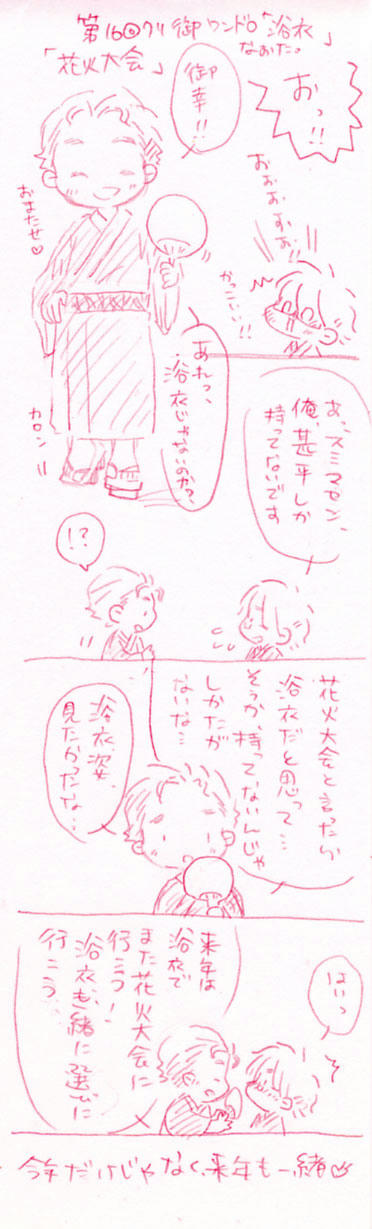 第16回クリ御ワンドロ「浴衣」
なおた。
「花火大会」
御幸!!
おっ!!
おおおおお
かっこいい!!
おまたせ♡
カロン
あれっ、
浴衣じゃないのか?
あ、スミマセン、
俺、甚平しか
持ってないです
!?
花火大会と言ったら
浴衣だと思って…
そうか、持ってないんじゃ
しかたが
ないな…
浴衣姿、
見たかったな…
はいっ
来年は
浴衣で
また花火大会に
行こう!
浴衣も一緒に選びに
行こう
今年だけじゃなく、来年も一緒♡